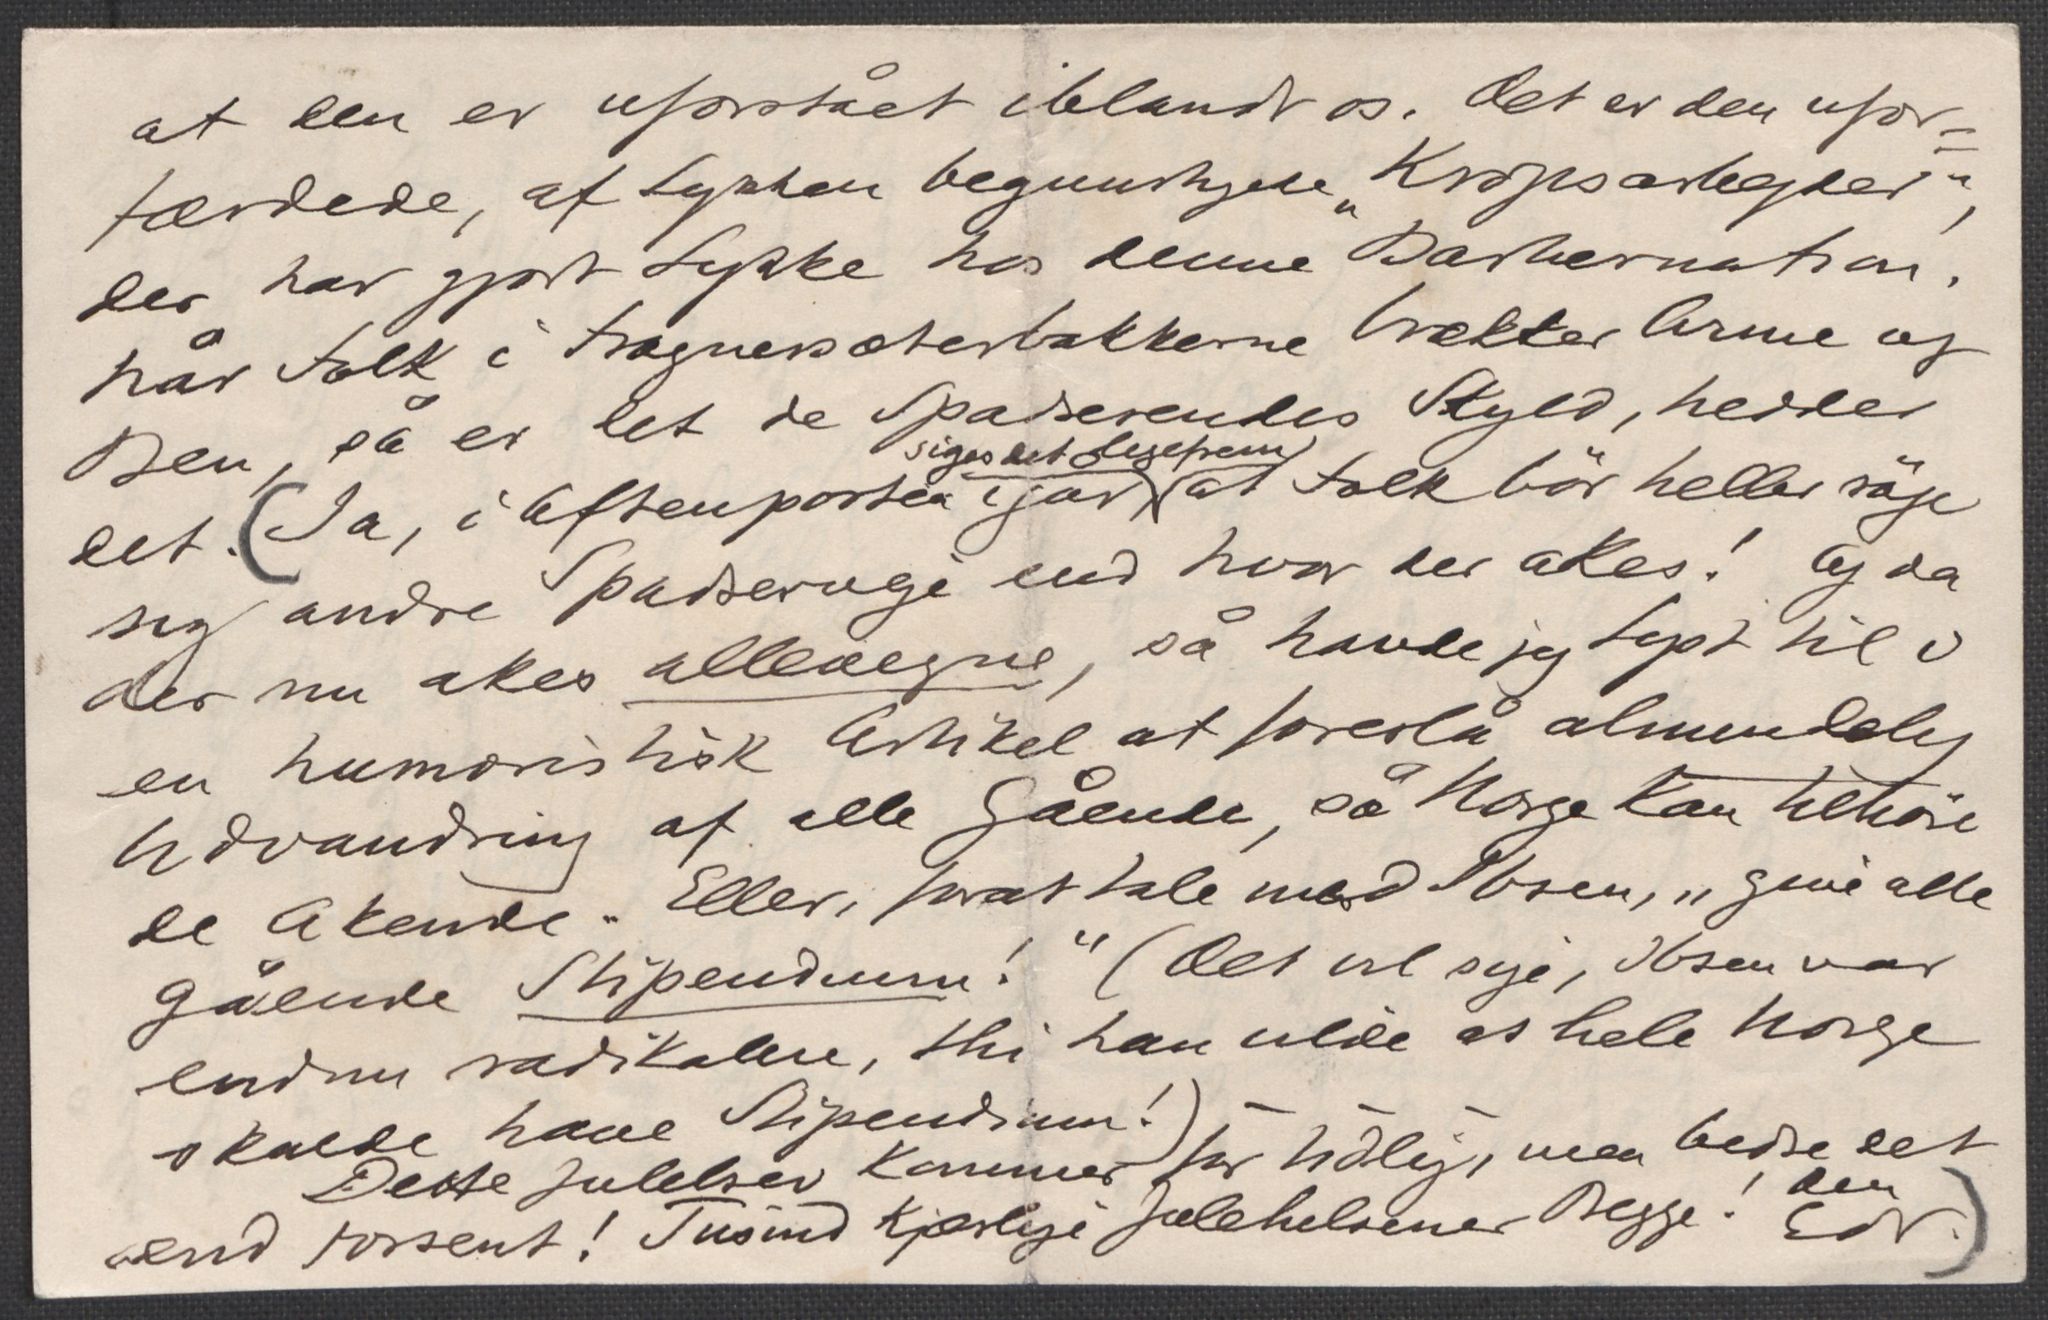 at den er uforstået iblandt os. Det er den ufor=
færdede, af Lykken begunstigede „Kropsarbejder“,
der har gjort Lykke hos denne Barbernation.
Når Folk i Frognersæterbakkerne brækker Arme og
Ben, så er det de Spadserendes Skyld, hedder
det. (Ja, i Aftenposten igår siges det ligefrem at Folk bör heller söge
sig andre Spadserveje end hvor der akes! Og da
der nu akes allevegne, så havde jeg Lyst til i
en humoristisk Artikel at foreslå almindelig
Udvandring af alle Gående, så Norge kan tilhöre
de Akende. Eller, for at tale med Ibsen, „give alle
Gående Stipendium!“ (Det vil sige, Ibsen var
endnu radikalere, thi han vilde at hele Norge
skulde have Stipendium!)
Dette Julebrev kommer for tidlig, men bedre det
end forsent! Tusind kjærlige Julehilsener Begge! Den
Edv.)